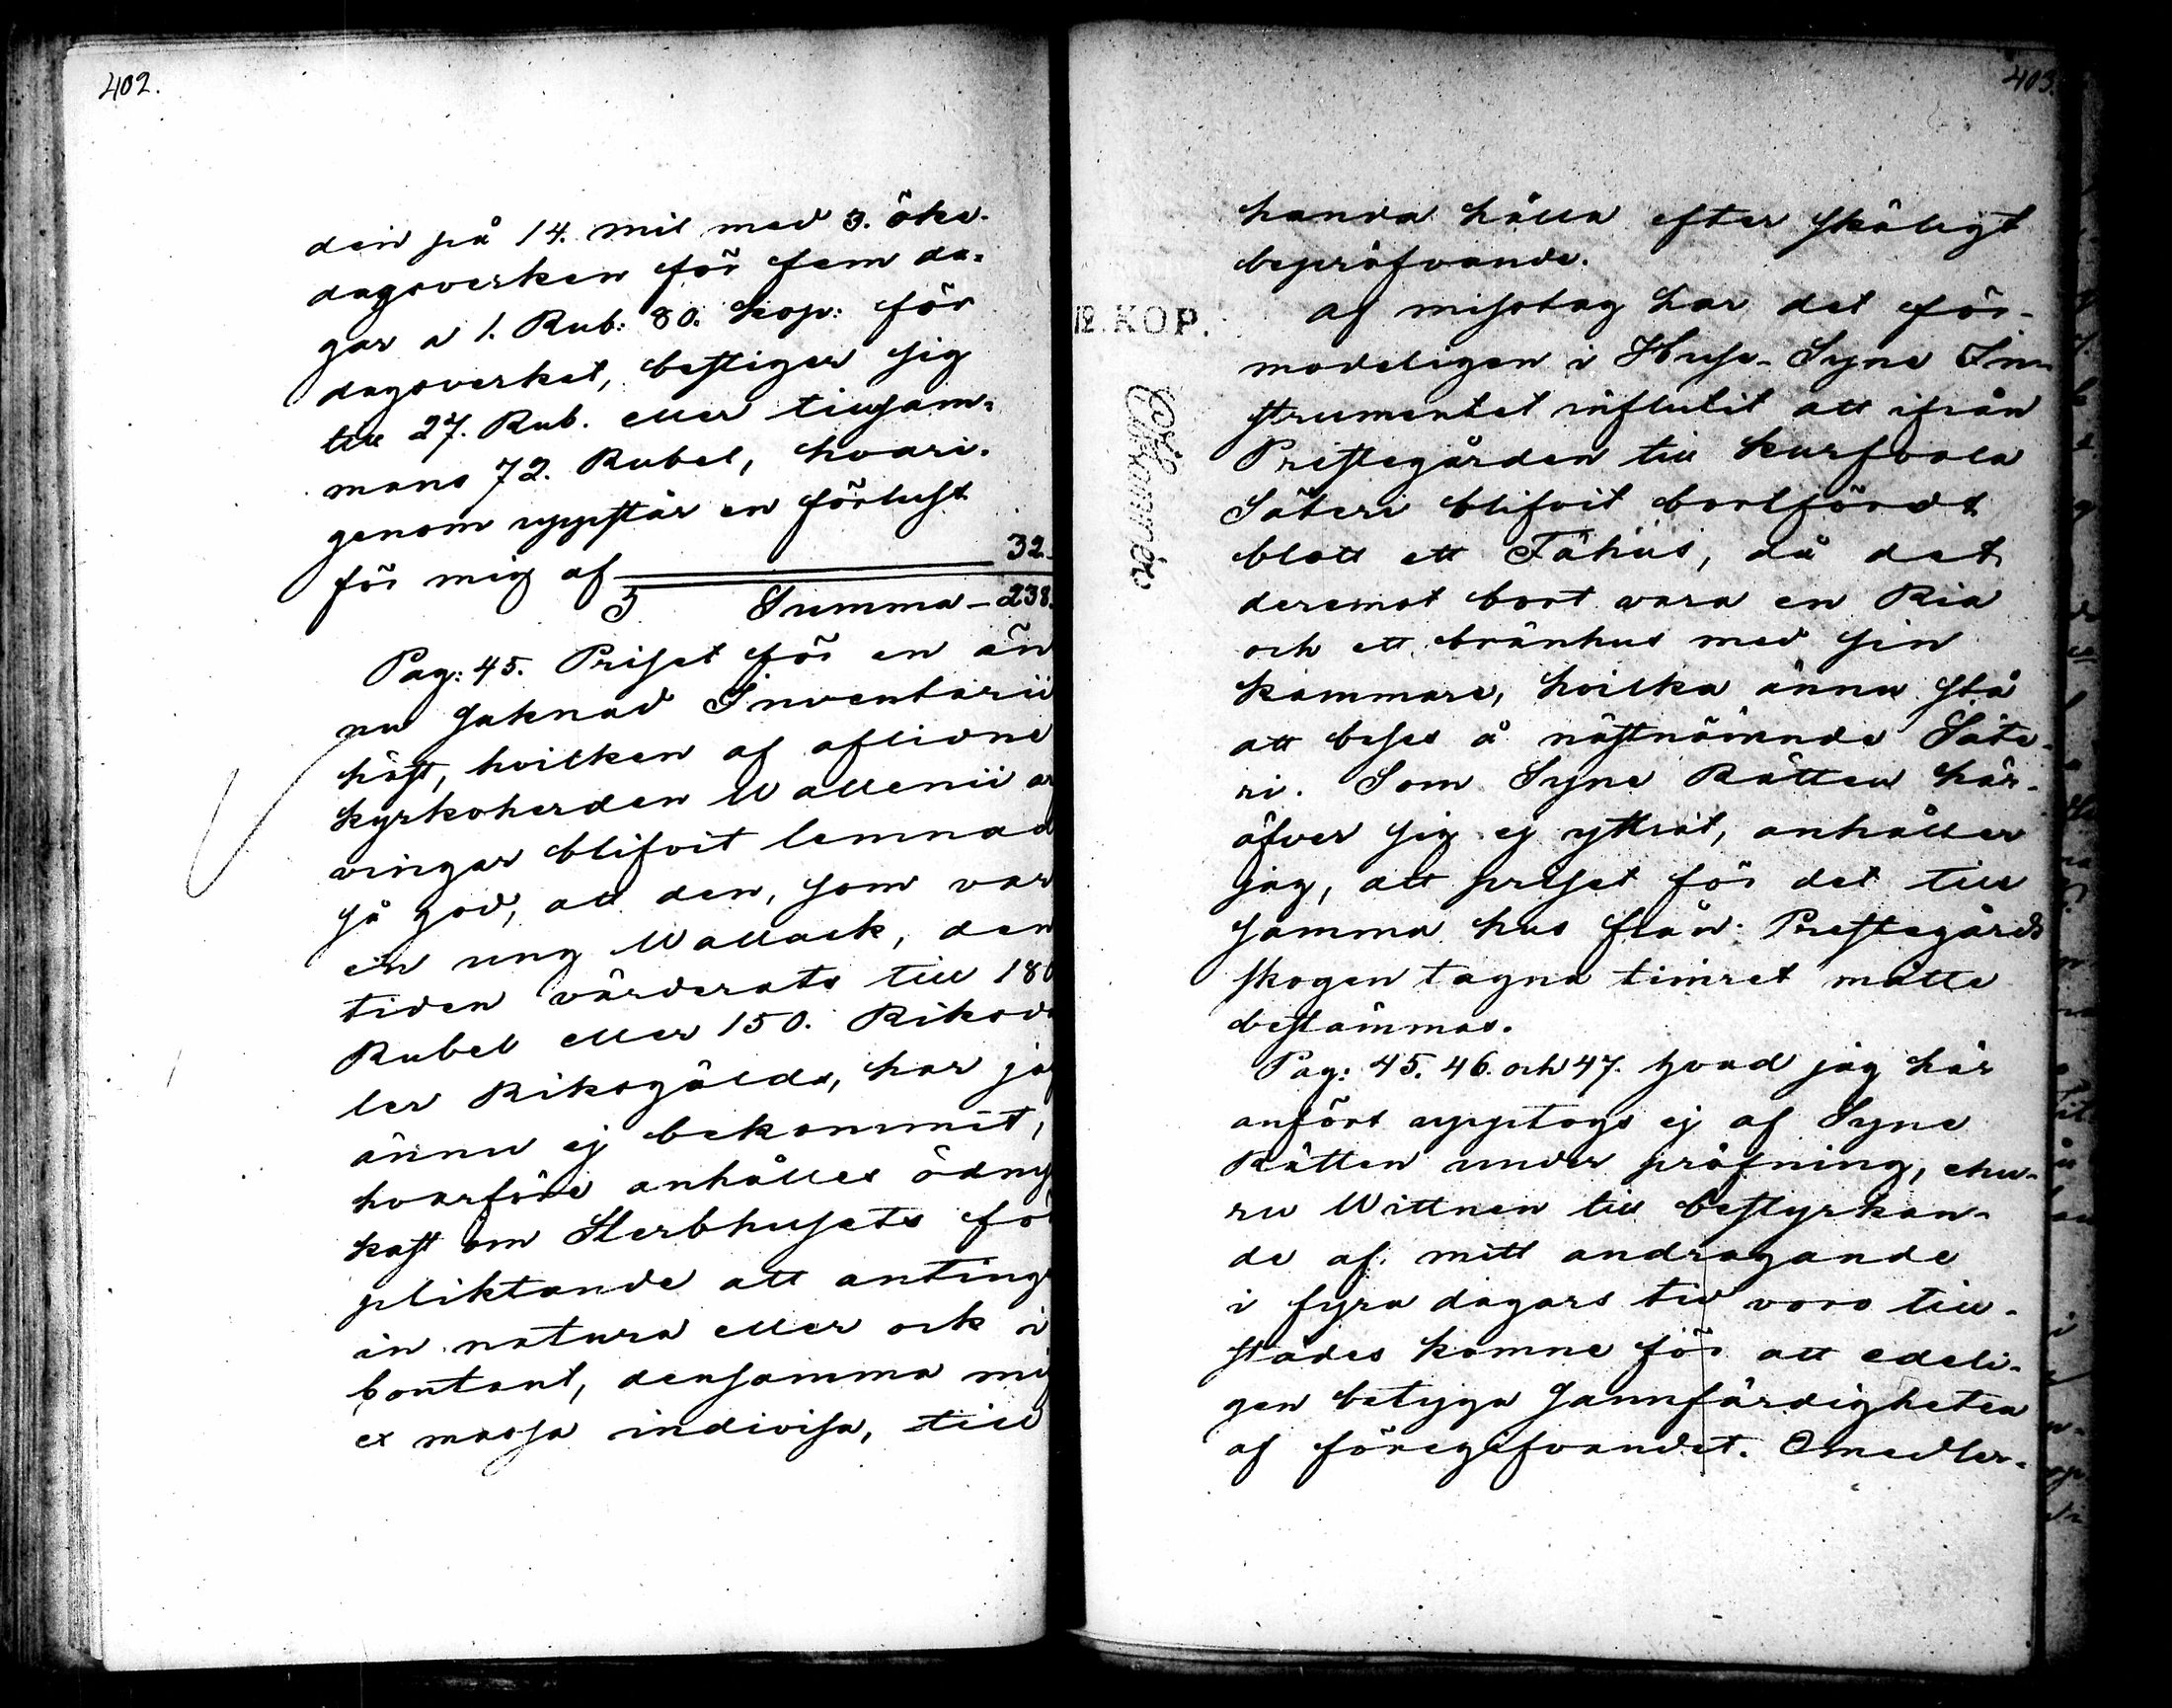 402.
den på 14. mil med 3. öke-
dagsverken för fem da-
gar a 1. Rub: 80. kop: för
dagsverket, bestiger sig
till 27. Rub. eller tillsam-
mans 72. Rubel, hvari-
genom uppstår en förlust
för mig af 32.
Summa - 238.
Pag: 45. Priset för en än
nu saknad Inventarii
häst, hvilken af aflidne
kyrkoherden Wallenii ar
vingar blifvit lemnad
så god, att den, som var
en ung Wallack, den
tiden värderats till 180
Rubel eller 150. Riksda
ler Riksgälds, har jag
ännu ej bekommit,
hvarföre anhålles ödmju
kast om Sterbhusets för
pliktande att antinge
in natura eller ock i
contant, densamma mig
ex massa indivisa, till
403.
handa hålla efter skäligt
bepröfvande.
Af misstag har det för-
modeligen i Huse-Syne In-
strumentet influtit att ifrån
Prestegården till Kurjvala
Säteri blifvit bortfördt
blott ett Fähus, då det
deremot bort vara en Ria
och ett bränhus med sin
kammare, hvilka ännu stå
att beses å nästnämnde Säte-
ri. Som Syne Rätten här-
öfver sig ej yttrat, anhåller
jag, att priset för det till
samma hus från Prestegårds
skogen tagna timret måtte
bestämmas.
Pag: 45. 46. och 47. Hvad jag här
anfört upptogs ej af Syne
Rätten under pröfning, ehu-
ru Wittnen till bestyrkan-
de af mitt andragande
i fyra dagars tid voro till-
städes komne för att edeli-
gen betyga sannfärdigheten
af föregifvandet. Emedler-
12. KOP.